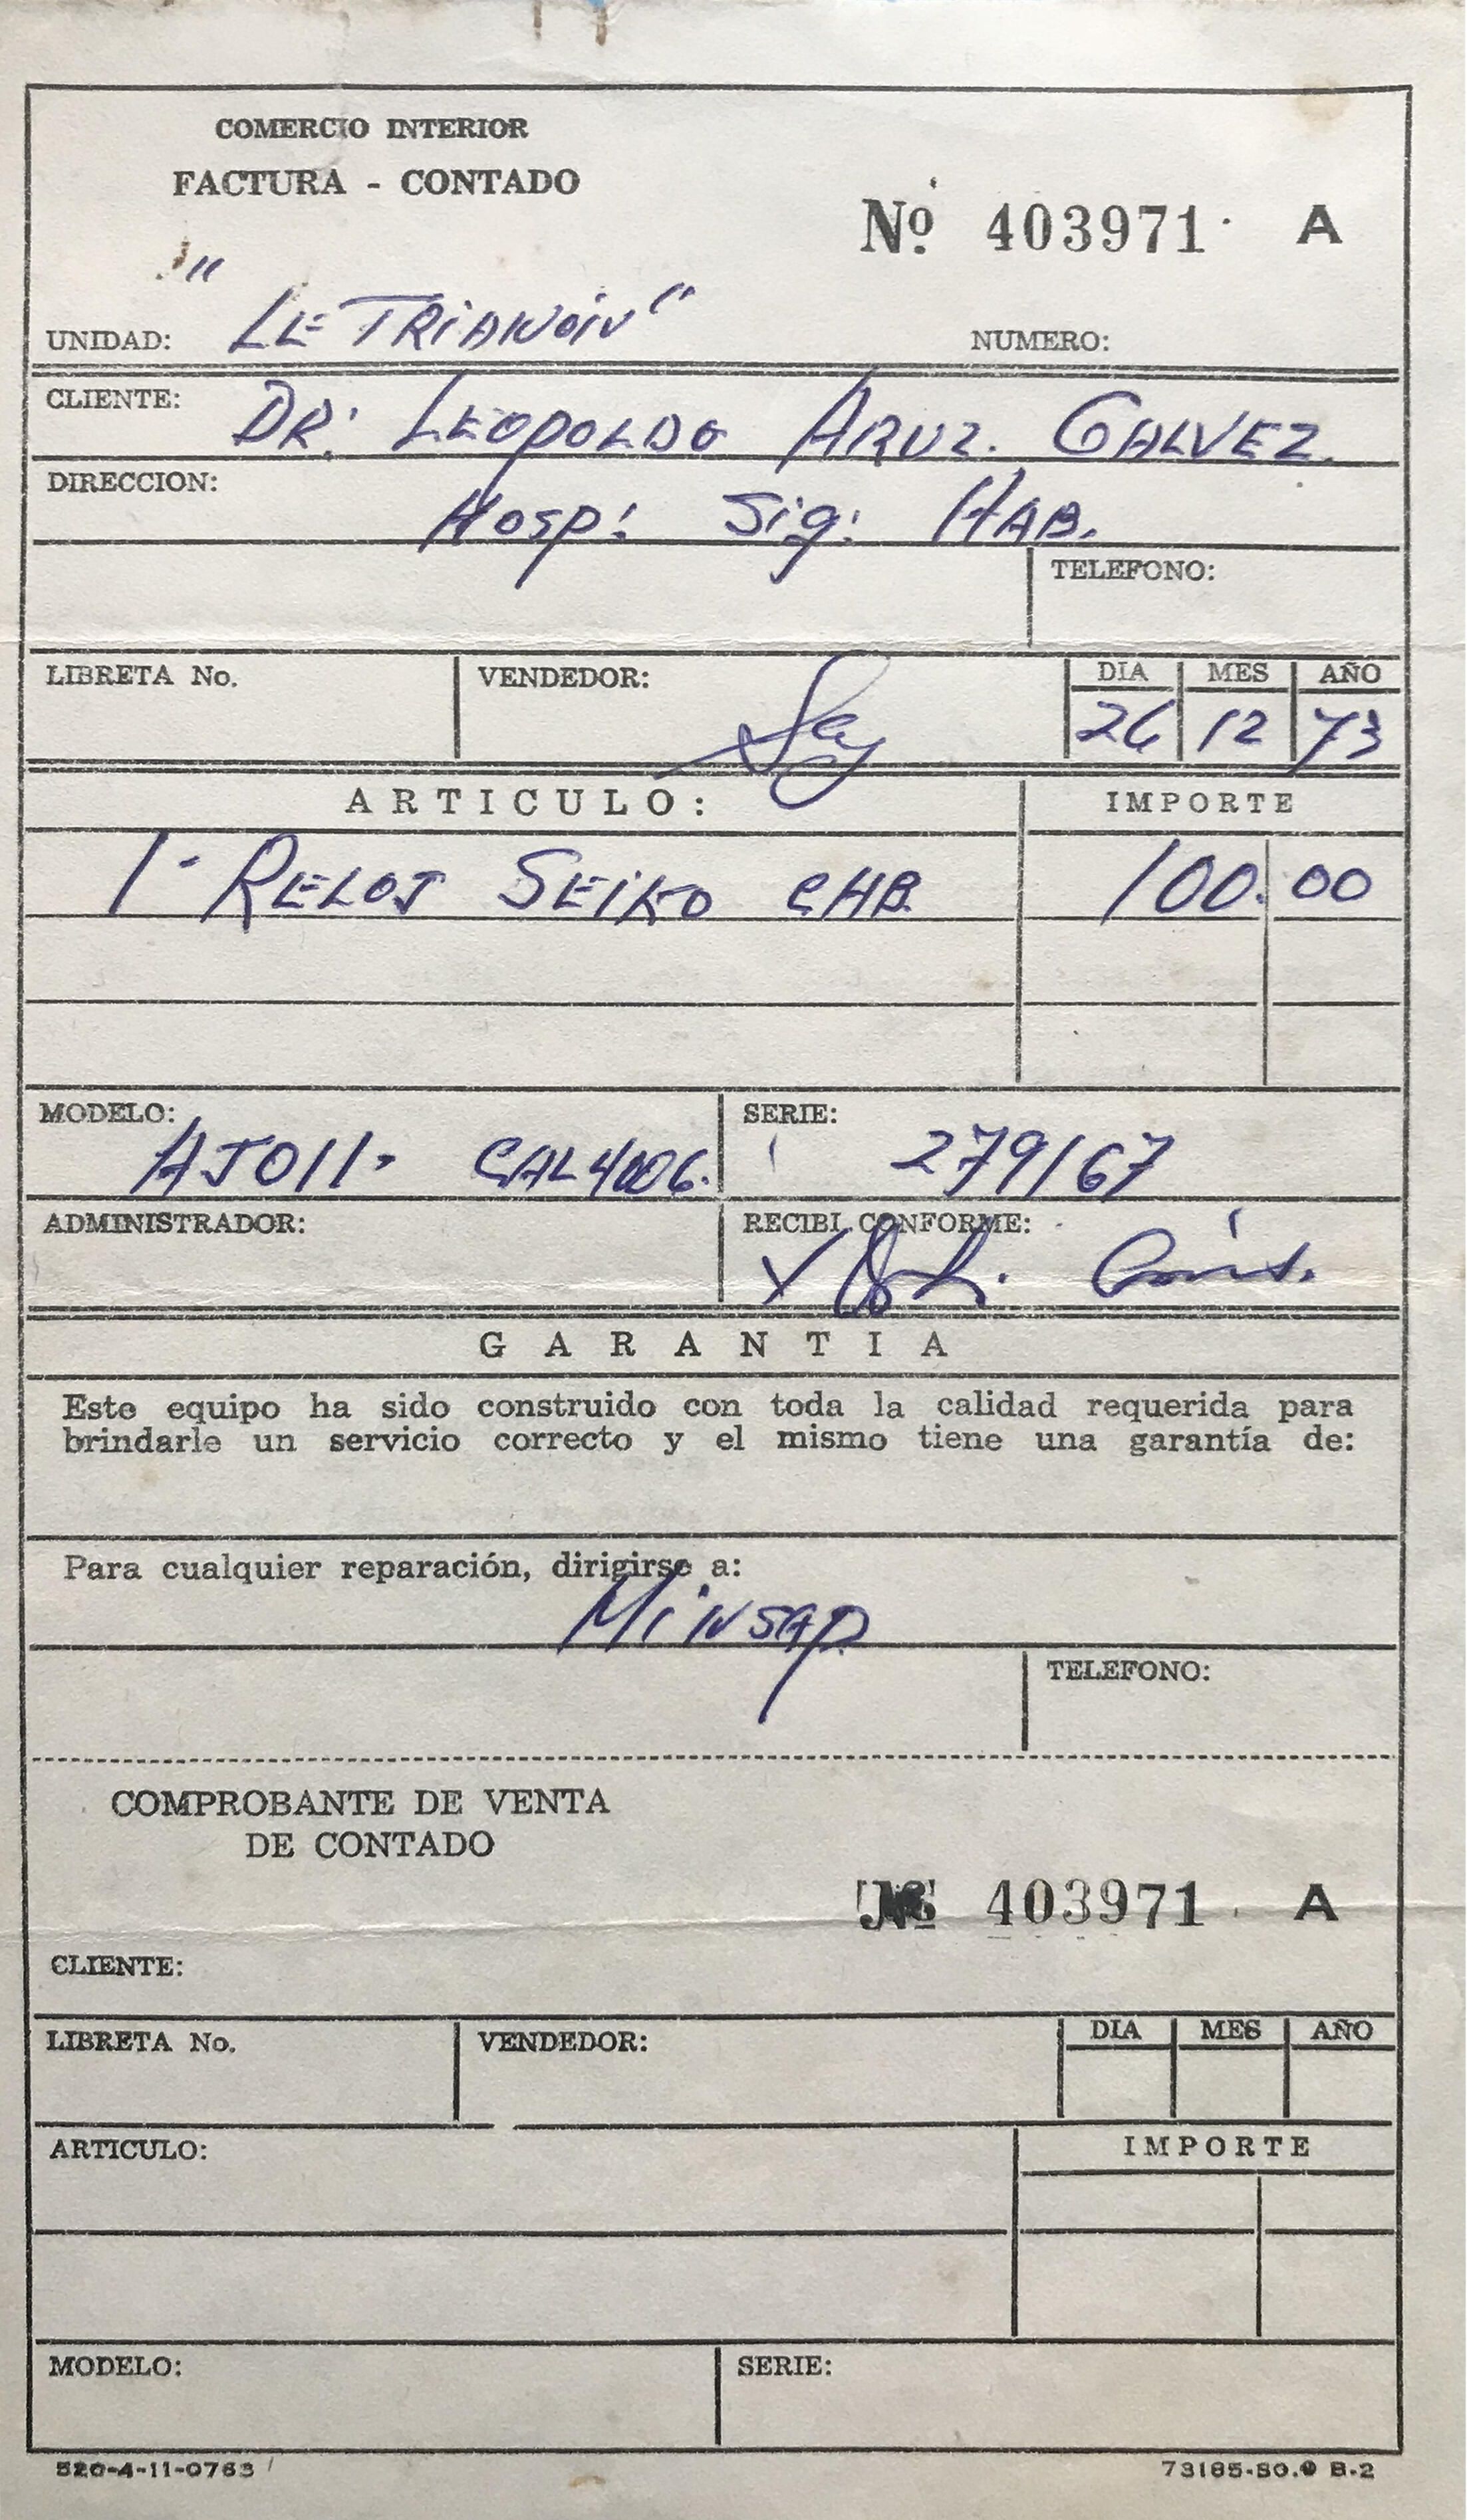 COMERCIO INTERIOR
FACTURA - CONTADO
Nº 403971 A
UNIDAD: "LE TRIANÓN" NUMERO:
CLIENTE: DR: LEOPOLDO ARUZ. GALVEZ.
DIRECCION: Hosp: Sig: HAB.
TELEFONO:
LIBRETA No. VENDEDOR: DIA MES AÑO
26 12 73
ARTICULO: IMPORTE
1- RELOJ SEIKO CHB. 100.00
MODELO: AJ011- CAL4006. SERIE: 279167
ADMINISTRADOR: RECIBI CONFORME:
GARANTIA
Este equipo ha sido construido con toda la calidad requerida para
brindarle un servicio correcto y el mismo tiene una garantía de:
Para cualquier reparación, dirigirse a:
MiNSAP
TELEFONO:
COMPROBANTE DE VENTA
DE CONTADO
Nº 403971 A
CLIENTE:
LIBRETA No. VENDEDOR: DIA MES AÑO
ARTICULO: IMPORTE
MODELO: SERIE:
520-4-11-0763 73185-SO.0 B-2